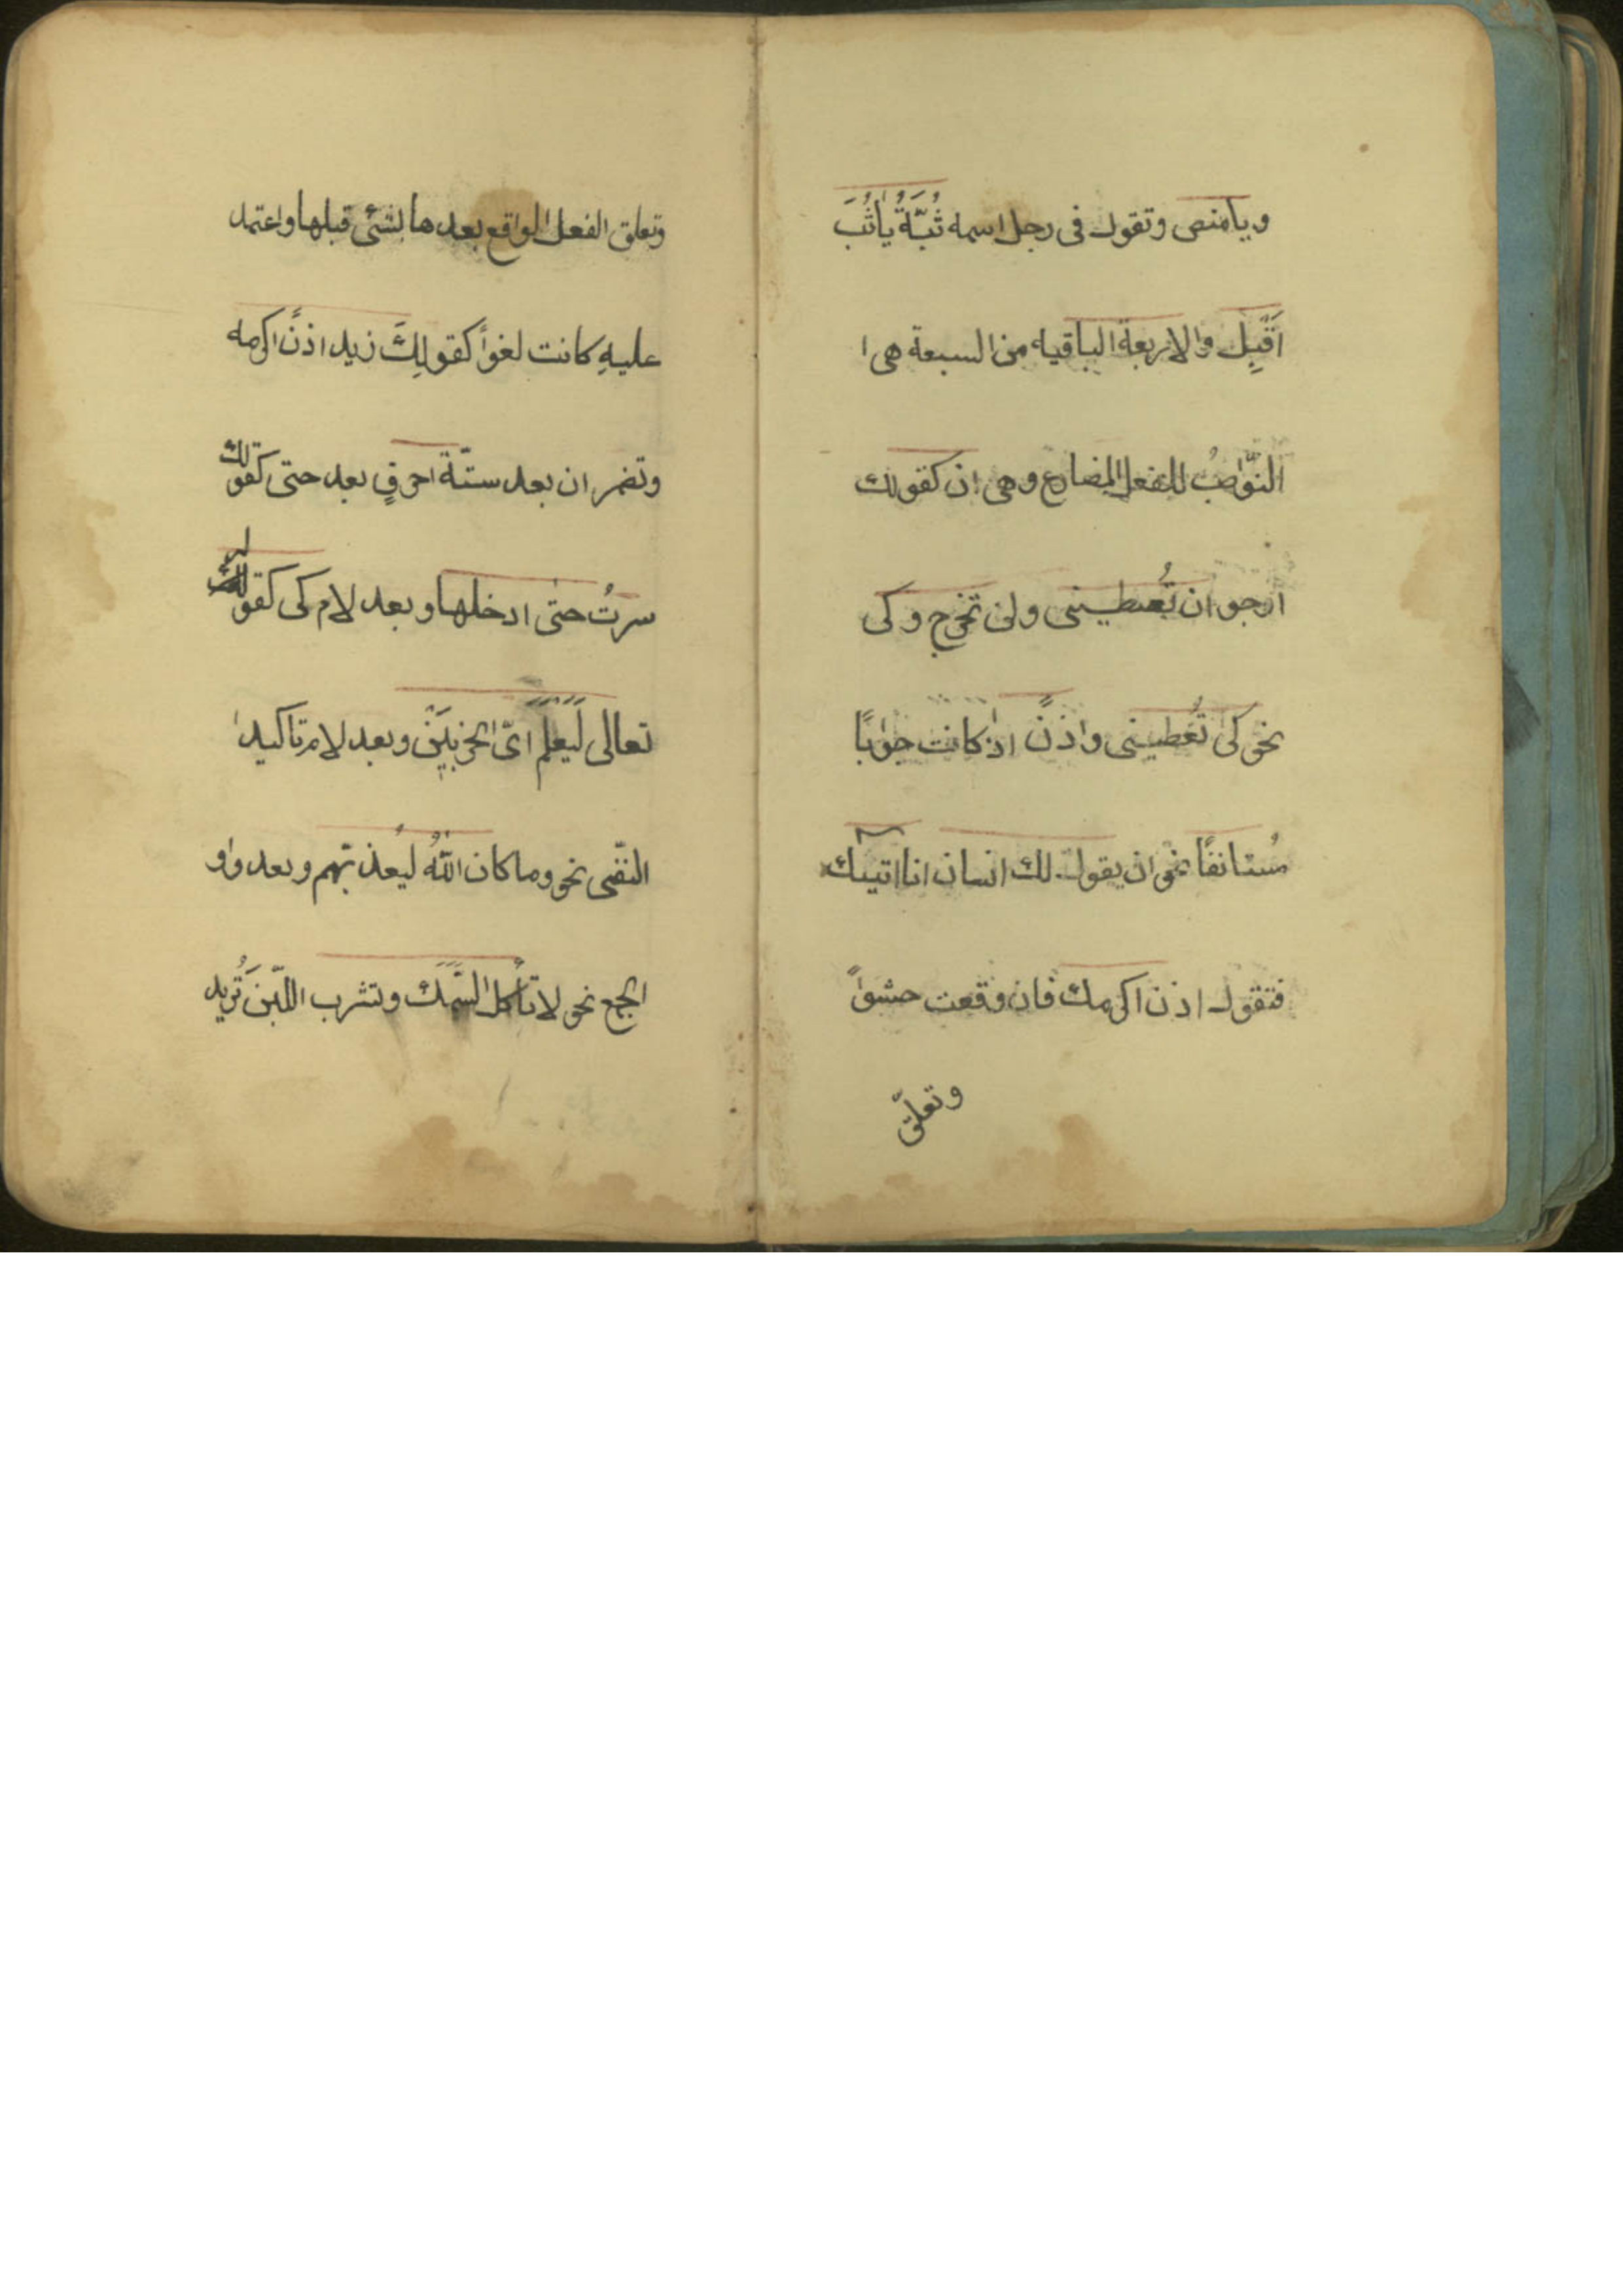 ويا منص وتقول فى رجل اسمه ثُبَةُ يا ثُبَ
اَقْبِل والاربعة الباقيه من السبعة هى ا
النّواصبُ للفعل المضارع وهى ان كقولك
ارجو ان تُعطينى ولن تخرج وكى
نحو كى تُعطينى واذنً اذ كانت جوابًا
مُستانفًا نحو ان يقول لك انسان انا اتيك
فتقول اذن اكرمك فان وقعت حشواً
وتعلّق
وتعلق الفعل الواقع بعدها بشئ قبلها واعتمد
عليهِ كانت لغواً كقولكَ زيد اذنً اكرمه
وتضمر ان بعد ستّة احرفٍ بعد حتى كقولك
سرتُ حتى ادخلها وبعد لام كى كقو
تعالى لَيعلمَ اىّ الحزبَيَنْ وبعد لام تاكيد
النفى نحو وما كان اللهُ ليُعذبهم وبعد واو
الجمع نحو لا تأكل السَّمَكَ وتشرب اللّبنَ تُريد